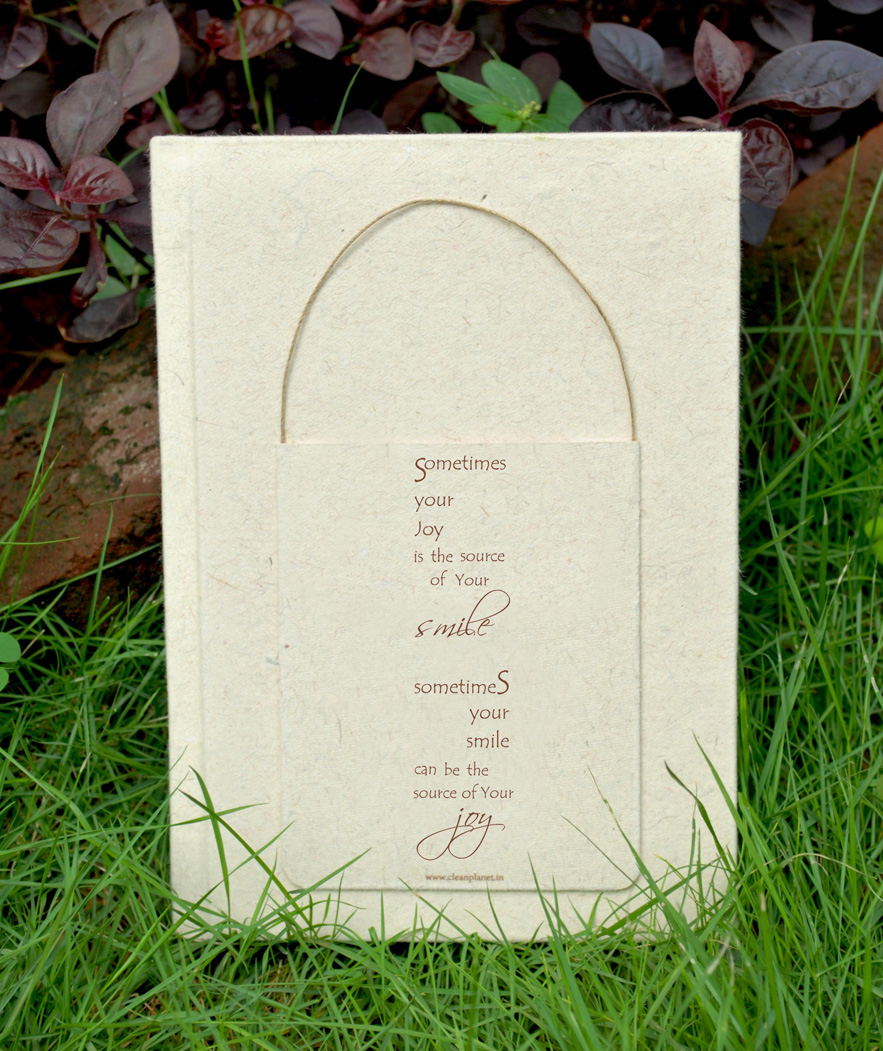 Sometimes
your
Joy
is the source
of Your
smile
sometimeS
your
smile
can be the
source of Your
joy
www.cleanplanet.in